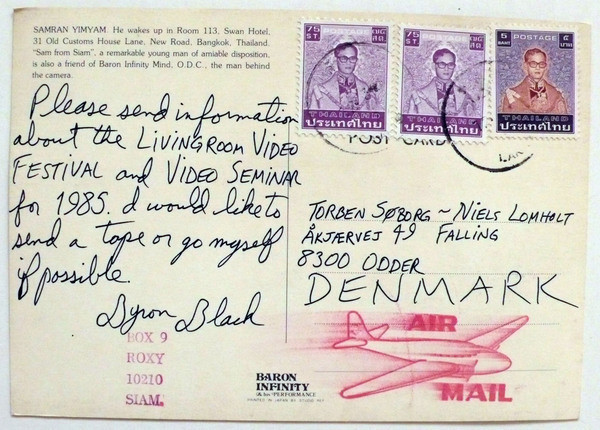 SAMRAN YIMYAM. He wakes up in Room 113, Swan Hotel,
31 Old Customs House Lane, New Road, Bangkok, Thailand.
"Sam from Siam", a remarkable young man of amiable disposition,
is also a friend of Baron Infinity Mind, O.D.C., the man behind
the camera.
75 POSTAGE
ST. ๗๕ สต.
THAILAND
ประเทศไทย
75 POSTAGE
ST. ๗๕ สต.
THAILAND
ประเทศไทย
5 POSTAGE ๕
BAHT บาท
THAILAND
ประเทศไทย
POST CARD
Please send information
about the LIVINGROOM VIDEO
FESTIVAL and VIDEO SEMINAR
for 1985. I would like to
send a tape or go myself
if possible.
Byron Black
BOX 9
ROXY
10210
SIAM.
TORBEN SØBORG ~ NIELS LOMHOLT
ÅKJÆRVEJ 49 FALLING
8300 ODDER
DENMARK
AIR
MAIL
BARON
INFINITY
& his PERFORMANCE
PRINTED IN JAPAN BY STUDIO